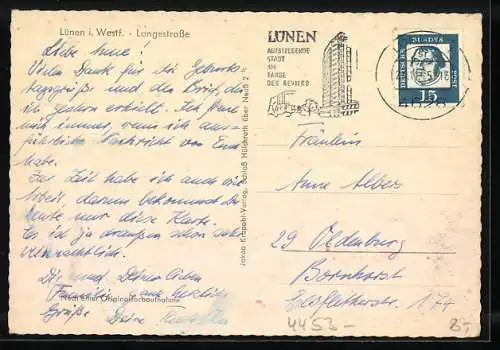 Lünen i. Westf. - Langestraße
Liebe Anne!
Vielen Dank für die Geburts-
tagsgrüße und den Brief, den
ich gestern erhielt. Ich freue
mich immer, wenn ich aus-
führliche Nachricht von Euch
habe.
Zur Zeit habe ich auch viel
Arbeit, darum bekommst du
heute nur diese Karte.
Es ist ja draußen schon sehr
Dir und Deinen lieben
Familie herzliche
Grüße Deine
Nach einer Originalfarbaufnahme
Jakob Krapohl-Verlag, Schloß Hülchrath über Neuß 2
LÜNEN
AUFSTREBENDE
STADT
IM
RANDE
DES REVIERS
DEUTSCHE BUNDESPOST
15
Fräulein
Anne Albers
29 Oldenburg
Bornhorst
174
4453-
8-